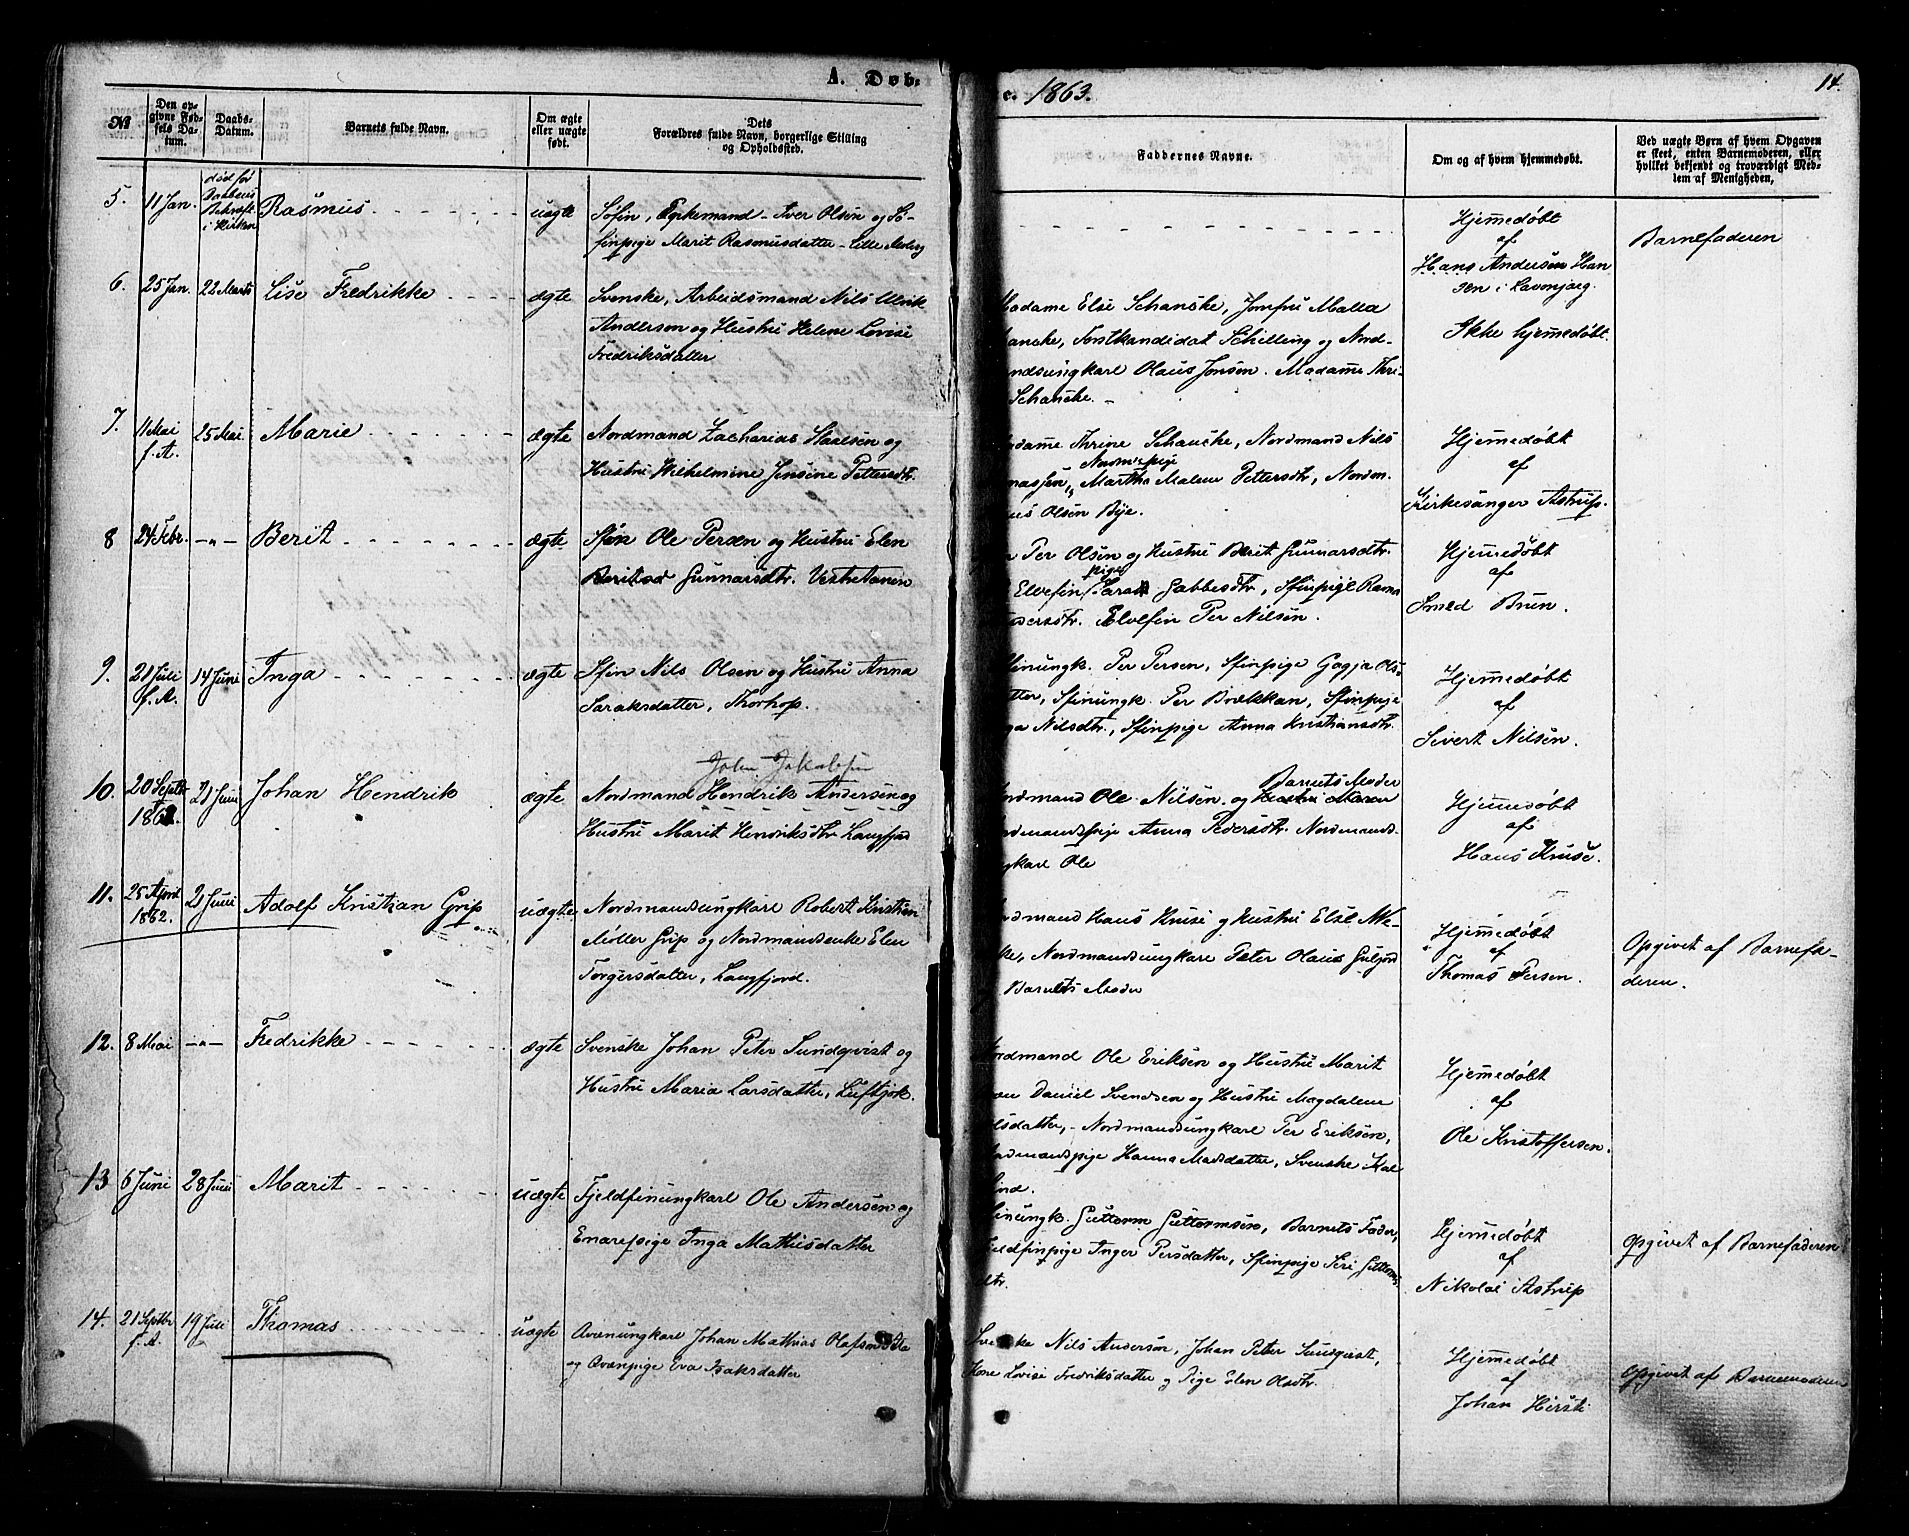 A. Døb-
e. 1863.
14.
№
Den op-
givne Fød-
sels Da-
tum.
Daabs-
Datum.
Barnets fulde Navn.
Om ægte
eller uægte
født.
Dets
Forældres fulde Navn, borgerlige Stilling
og Opholdssted.
Faddernes Navne.
Om og af hvem hjemmedøbt.
Ved uægte Børn af hvem Opgaven
er skeet, enten Barnemoderen, eller
hvilket bekjendt og troværdigt Med-
lem af Menigheden,
5. 11 Jan. død før
Daabens
Bekræft.
i Kirken
Rasmus uægte
Søfin, Enkemand Iver Olsen og Sø-
finpige Marit Rasmusdatter - Lille
Hjemmedøbt
af
Hans Andersen Han
sen i Lavonjarg.
Barnefaderen
6. 25 Jan. 22 Marts Lise Fredrikke ægte
Svenske, Arbeidsmand Nils Ulrik
Anderson og Hustru Helene Lovise
Fredriksdatter
Madame Else Schancke, Jomfru Malla
ancke, Forstkandidat Schilling og Nord-
andsungkarl Olaus Jonsen. Madame Thri-
Schancke. -
Ikke hjemmedøbt.
7. 11 Mai
f. A. 25 Mai Marie ægte
Nordmand Zacharias Isaksen og
Hustru Wilhelmine Jensine Pettersdtr.
adame Thrine Schancke, Nordmand Nils
Nordm.spige
nassen, Martha Malene Pettersdtr, Nordm.
us Olsen Bye.
Hjemmedøbt
af
Kirkesanger Astrup.
8 24 Febr. -"- Berit ægte
Sfin Ole Persen og Hustru Elen
Berit Gunnarsdtr. Vestertanen
n Per Olsen og Hustru Berit Gunnarsdtr.
pige
Elvefin Sara Gabbesdtr, Sfinpige Rana
dersdtr. Elvefin Per Nilsen.
Hjemmedøbt
af
Smed Brun.
9. 21 Juli
f. A. 14 Juni Inga ægte
Sfin Nils Olsen og Hustru Anna
Saraksdatter, Thorhop.
finungk. Per Persen, Sfinpige Gagja Ols-
tter, Sfinungk. Per Brækkan, Sfinpige
ga Nilsdtr., Sfinpige Anna Kristiansdtr.
Hjemmedøbt
af
Sivert Nilsen.
10. 20 Septbr
1862. 21 Juni Johan Hendrik ægte
John Jakobsen
Nordmand Hendrik Andersen og
Hustru Marit Hendriksdtr Langfjord
Barnets Moder
ordmand Ole Nilsen og Hustru Maren
rdmandspige Anna Pedersdtr. Nordmands-
gkarl Ole
Hjemmedøbt
af
Hans Kruse.
11. 25 April
1862. 21 Juni Adolf Kristian Grip uægte
Nordmandsungkarl Robert Kristian
Møller Grip og Nordmandsenke Elen
Torgersdatter, Langfjord.
ordmand Hans Kruse og Hustru Else Me-
ke, Nordmandsungkarl Peter Olaus
Barnets Moder
Hjemmedøbt
af
Thomas Persen.
Opgivet af Barnefa-
deren.
12. 8 Mai -"- Fredrikke ægte
Svenske Johan Peter Sundqvist og
Hustru Maria Larsdatter, Luftjok.
Nordmand Ole Eriksen og Hustru Marit
Daniel Svendsen og Hustru Magdalene
lsdatter, - Nordmandsungkarl Per Eriksen,
ordmandspige Hanna Madsdatter, Svenske
ind.
Hjemmedøbt
af
Ole Kristoffersen.
13 6 Juni 28 Juni Marit uægte
Fjeldfinungkarl Ole Andersen og
Enarepige Inga Mathisdatter
finungk. Guttorm Guttormsen, Barnets Fader,
jeldfinpige Inger Persdatter, Sfinpige Siri Guttorms
dtr.
Hjemmedøbt
af
Nikolai Astrup
Opgivet af Barnefaderen
14. 21 Septbr
f. A. 19 Juli Thomas uægte
Qvænungkarl Johan Mathias Olafsen
og Qvænpige Eva Isaksdatter
Svenske Nils Anderson, Johan Peter Sundqvist,
Kone Lovise Fredriksdatter og Pige Elen Olsdtr.
Hjemmedøbt
af
Johan Hirsti
Opgivet af Barnemoderen